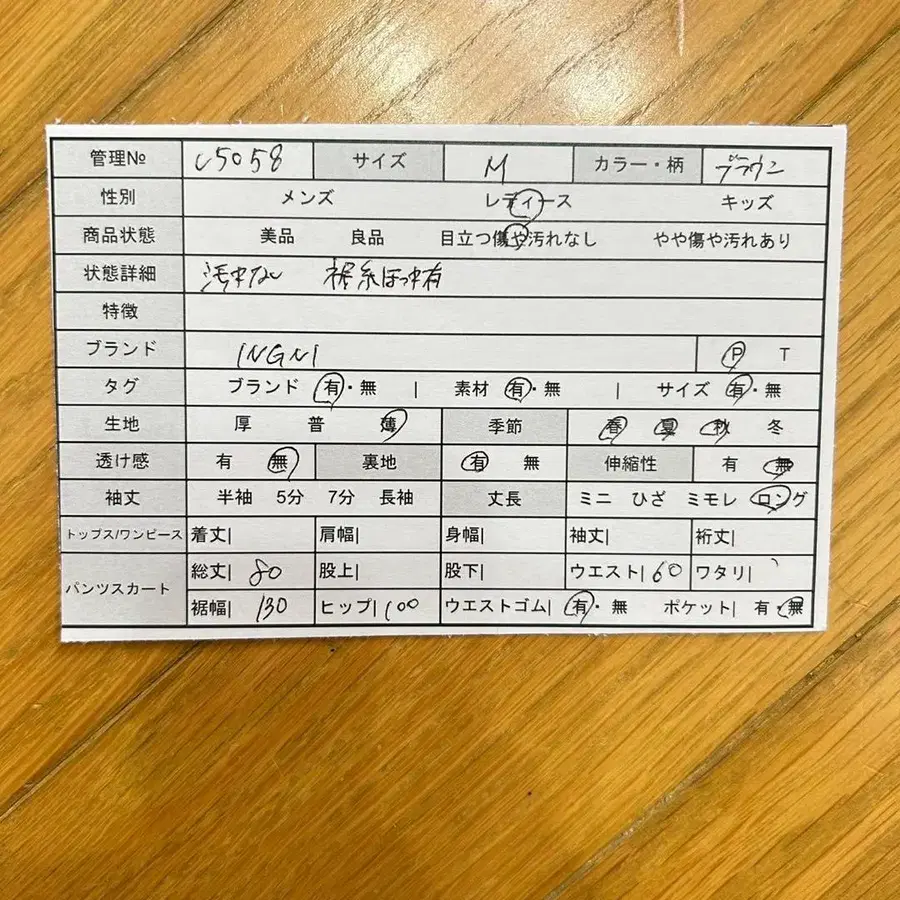 管理№ C5058 サイズ M カラー・柄 ブラウン
性別 メンズ レディース キッズ
商品状態 美品 良品 目立つ傷や汚れなし やや傷や汚れあり
状態詳細 裾糸ほつれ有
特徴
ブランド INGNI P T
タグ ブランド 有・無 | 素材 有・無 | サイズ 有・無
生地 厚 普 薄 季節 春 夏 秋 冬
透け感 有 無 裏地 有 無 伸縮性 有 無
袖丈 半袖 5分 7分 長袖 丈長 ミニ ひざ ミモレ ロング
トップス/ワンピース 着丈| 肩幅| 身幅| 袖丈| 裄丈|
パンツスカート 総丈| 80 股上| 股下| ウエスト| 60 ワタリ|
裾幅| 130 ヒップ| 100 ウエストゴム| 有・無 ポケット| 有・無